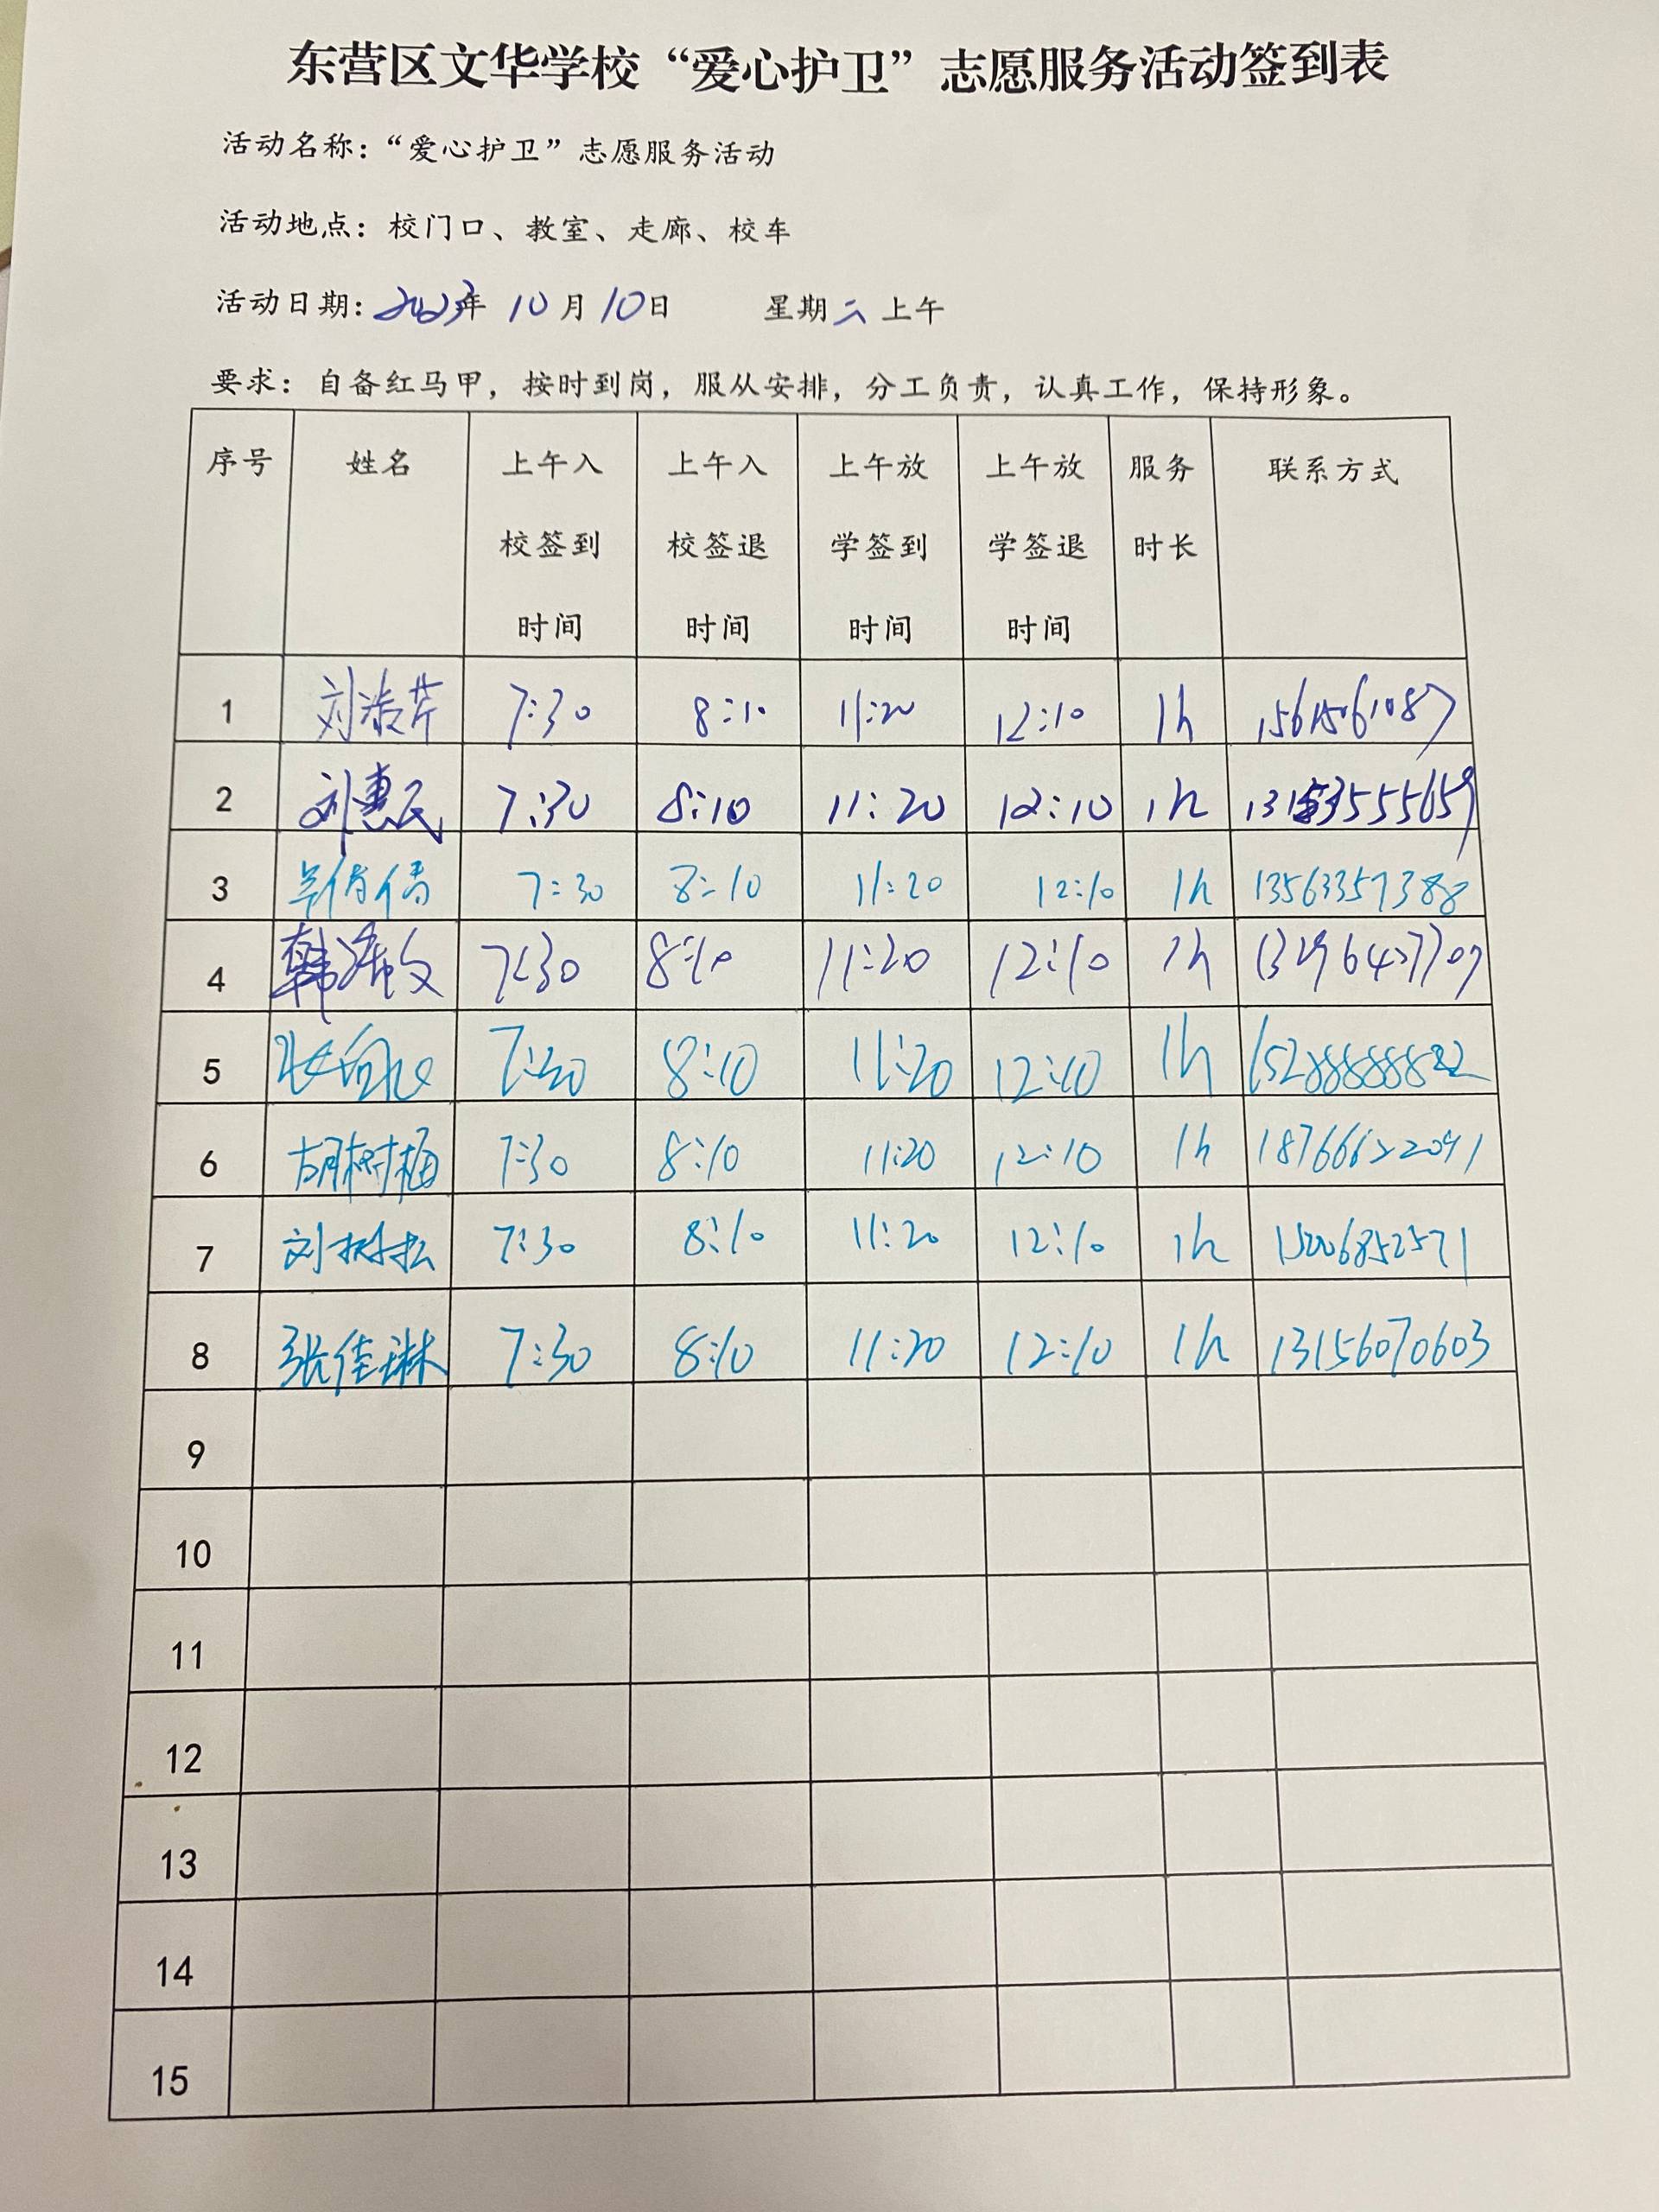 东营区文华学校“爱心护卫”志愿服务活动签到表
活动名称：“爱心护卫”志愿服务活动
活动地点：校门口、教室、走廊、校车
活动日期：2023年 10月10日 星期二 上午
要求：自备红马甲，按时到岗，服从安排，分工负责，认真工作，保持形象。
序号 姓名 上午入校签到时间 上午入校签退时间 上午放学签到时间 上午放学签退时间 服务时长 联系方式
1 7:30 8:10 11:20 12:10 1h 15615061087
2 刘惠民 7:30 8:10 11:20 12:10 1h
3 7:30 8:10 11:20 12:10 1h 13563357388
4 7:30 8:10 11:20 12:10 1h
5 7:30 8:10 11:20 12:10 1h
6 胡树梅 7:30 8:10 11:20 12:10 1h 18766622091
7 刘树松 7:30 8:10 11:20 12:10 1h 15006852571
8 张佳琳 7:30 8:10 11:20 12:10 1h 13156070603
9
10
11
12
13
14
15